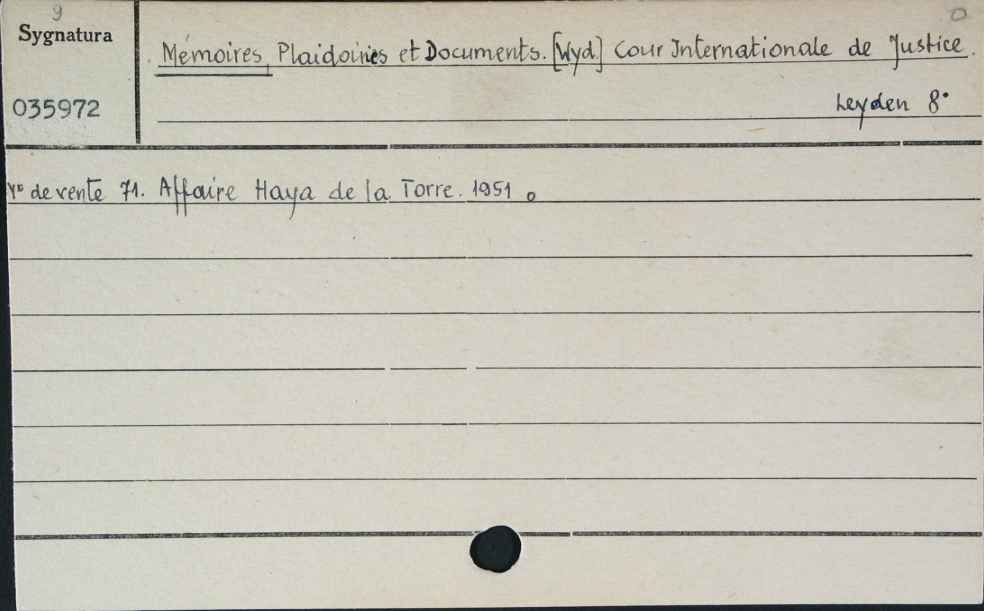 9
Sygnatura
035972
Mémoires, Plaidoiries et Documents. [Wyd.] Cour Internationale de Justice.
Leyden 8°
de vente 71. Affaire Haya de la Torre. 1951